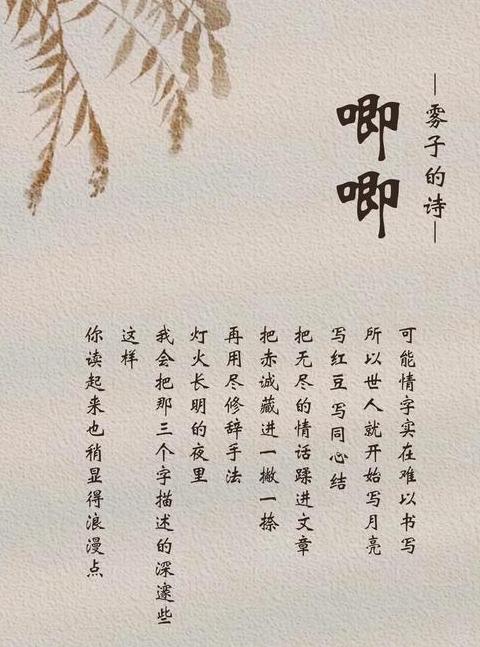 —雾子的诗—
唧唧
可能情字实在难以书写
所以世人就开始写月亮
写红豆 写同心结
把无尽的情话蹂进文章
把赤诚藏进一撇一捺
再用尽修辞手法
灯火长明的夜里
我会把那三个字描述的深邃些
这样
你读起来也稍显得浪漫点